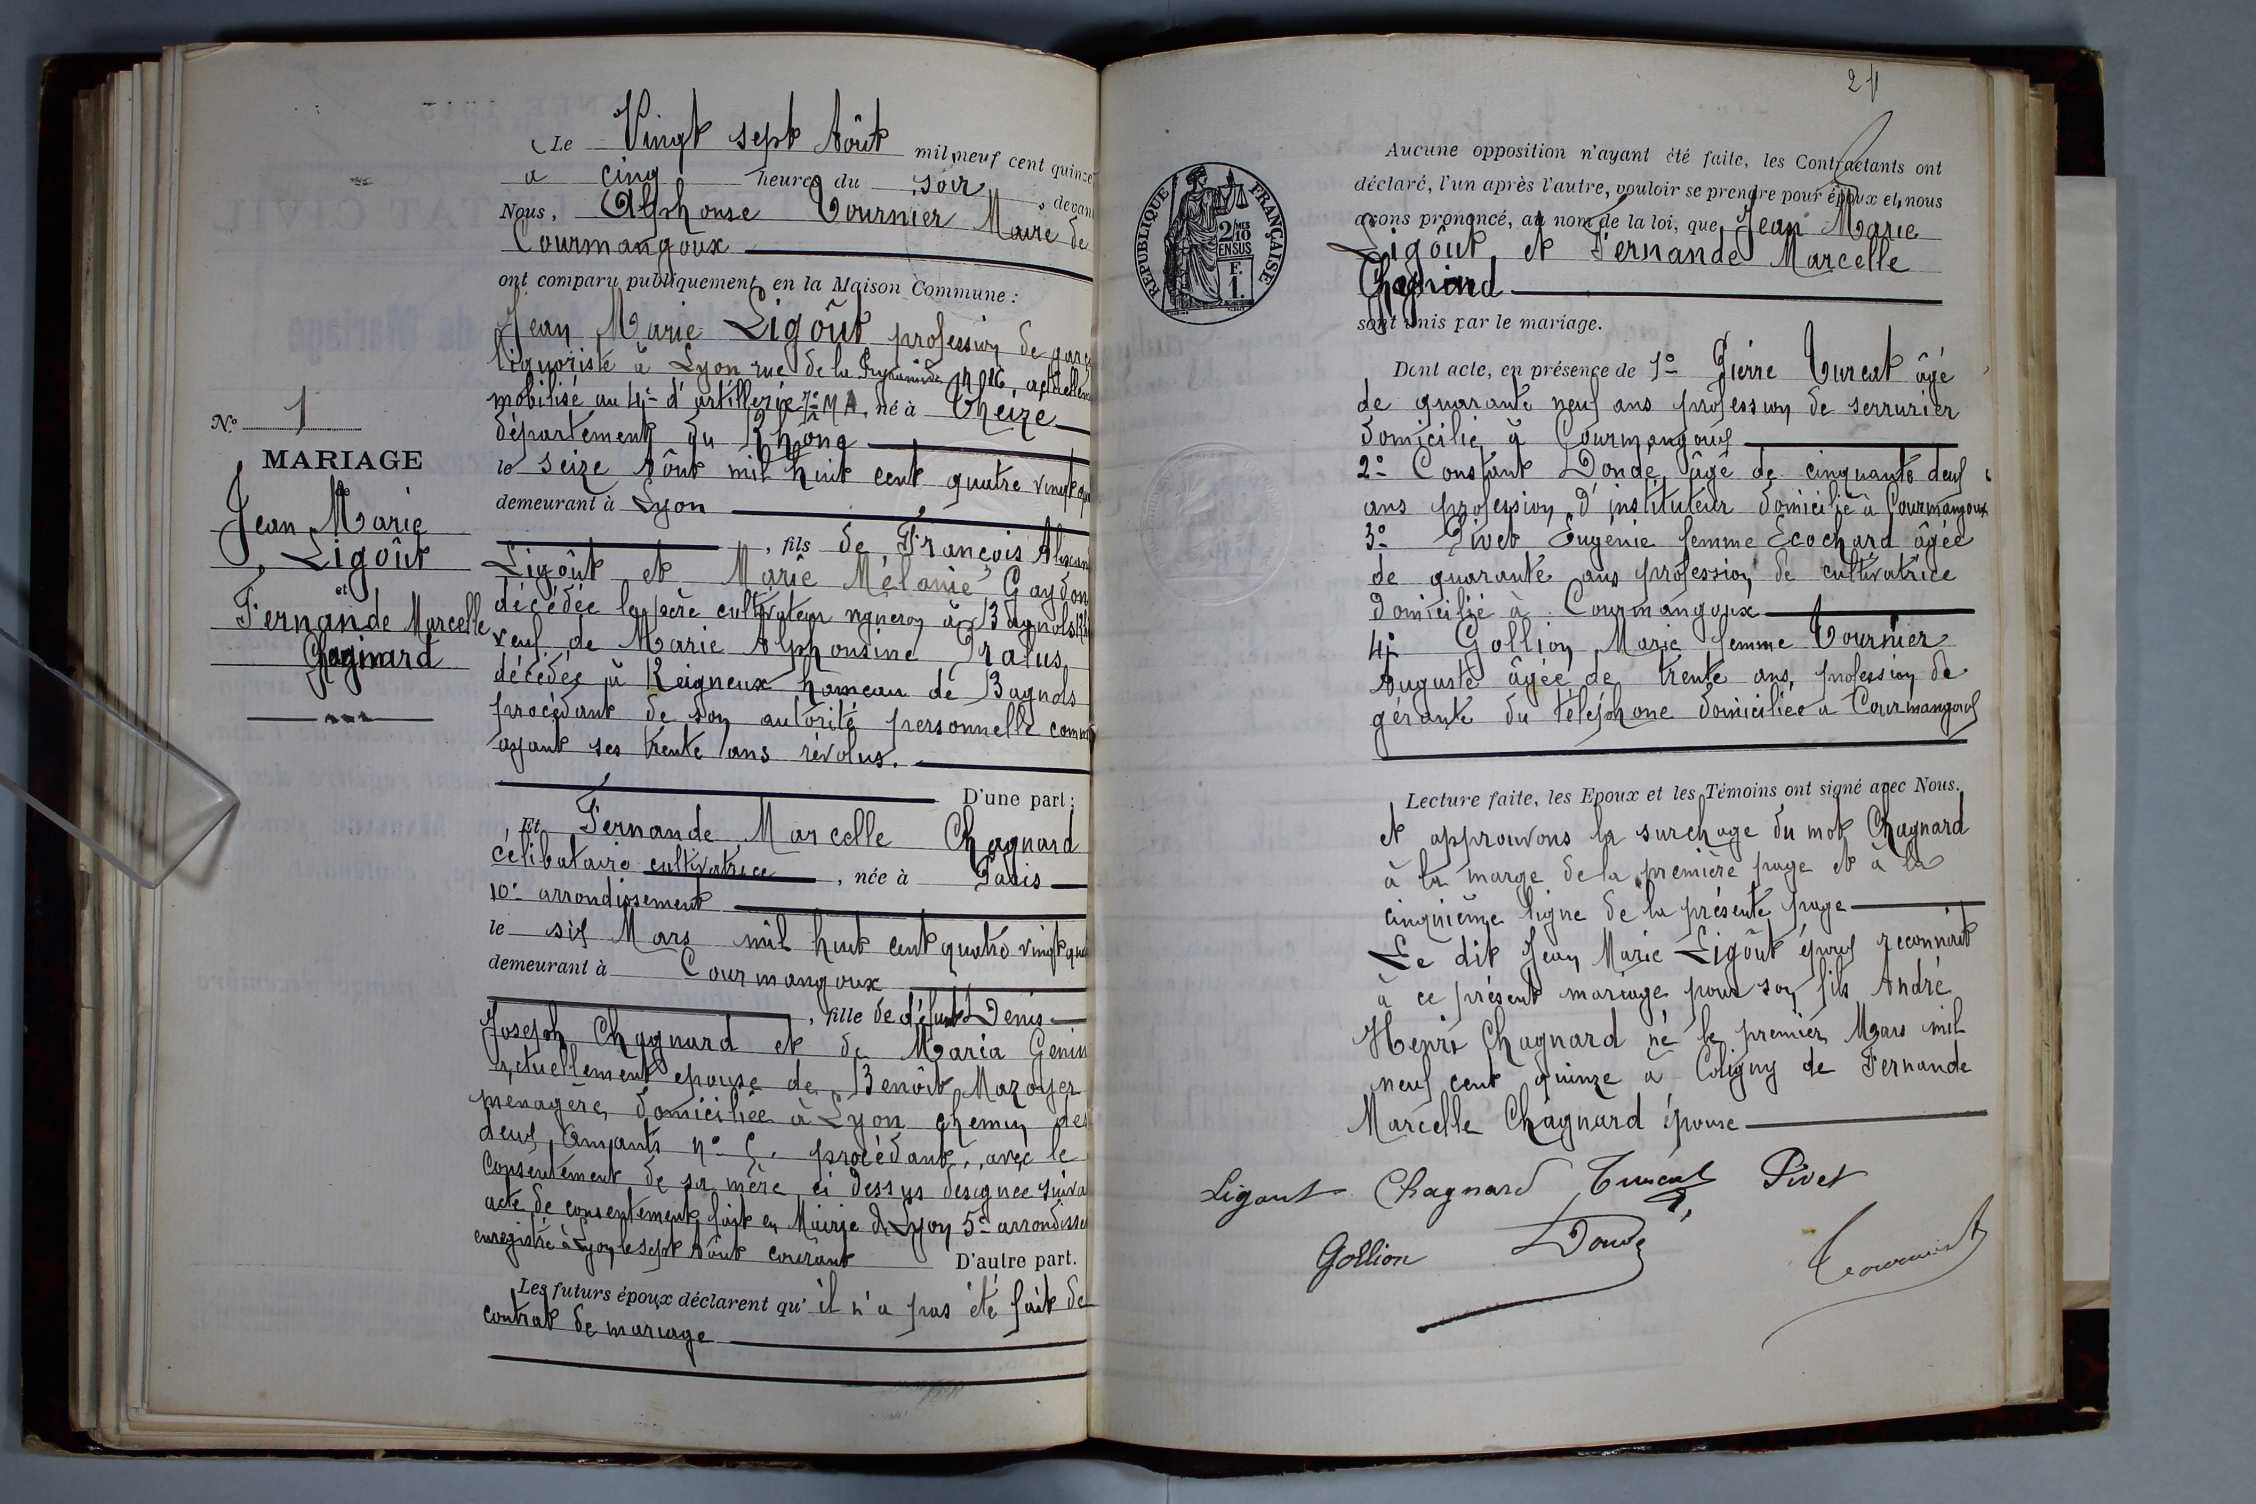 Le Vingt sept Août mil neuf cent quinze
a cinq heures du soir, devant
Nous, Alphonse Tournier Maire de
Courmangoux
ont comparu publiquement en la Maison Commune :
Jean Marie Ligôut profession de garç
liquoriste à Lyon rue de la Pyramide n° 16, actuellem
mobilisé au 4e d'artillerie, né à Theize
département du Rhône
le seize Août mil huit cent quatre vingt
demeurant à Lyon
, fils de François
Ligôut et Marie Mélanie Gaydon
décédée le père cultivateur vigneron à Bagnols
veuf de Marie Alphonsine Pralus
décédée à Reigneux hameau de Bagnols
procédant de son autorité personnelle comme
ayant ses trente ans révolus.
D'une part ;
N° 1
MARIAGE
Jean Marie
Ligôut
et
Fernande Marcelle
Chagnard
Et Fernande Marcelle Chagnard
célibataire cultivatrice, née à Paris
10e arrondissement
le six Mars mil huit cent quatre vingt
demeurant à Courmangoux
, fille de défunt Denis
Joseph Chagnard et de Maria Genin
actuellement épouse de Benôit Mazoyer
ménagère domiciliée à Lyon chemin des
deux Amants n° 5. procédant, avec le
consentement de sa mère ci dessus désignée suiva
acte de consentement fait en Mairie de Lyon 5e arrondisse
enregistré à Lyon le sept Août courant D'autre part.
Les futurs époux déclarent qu'il n'a pas été fait de
contrat de mariage
Aucune opposition n'ayant été faite, les Contractants ont
déclaré, l'un après l'autre, vouloir se prendre pour époux et, nous
avons prononcé, au nom de la loi, que Jean Marie
Ligôut et Fernande Marcelle
Chagnard
sont unis par le mariage.
RÉPUBLIQUE FRANÇAISE
2/10 MES
EN SUS
F.
1.
Dont acte, en présence de 1° Pierre Turcat âgé
de quarante neuf ans profession de serrurier
domicilié à Courmangoux
2° Constant Dondé âgé de cinquante deux
ans profession d'instituteur domicilié à Courmangoux
3° Pivet Eugénie femme Ecochard âgée
de quarante ans profession de cultivatrice
domicilié à Courmangoux
4° Gollion Marie femme Tournier
Auguste âgée de trente ans, profession de
gérante du téléphone domiciliée à Courmangoux
Lecture faite, les Epoux et les Témoins ont signé avec Nous.
et approuvons la surchage du mot Chagnard
à la marge de la première page et à la
cinquième ligne de la présente page
Le dit Jean Marie Ligôut époux reconnait
à ce présent mariage pour son fils André
Henri Chagnard né le premier Mars mil
neuf cent quinze à Coligny de Fernande
Marcelle Chagnard épouse
Ligout Chagnard Turcat Pivet
Gollion Dondé Tournier